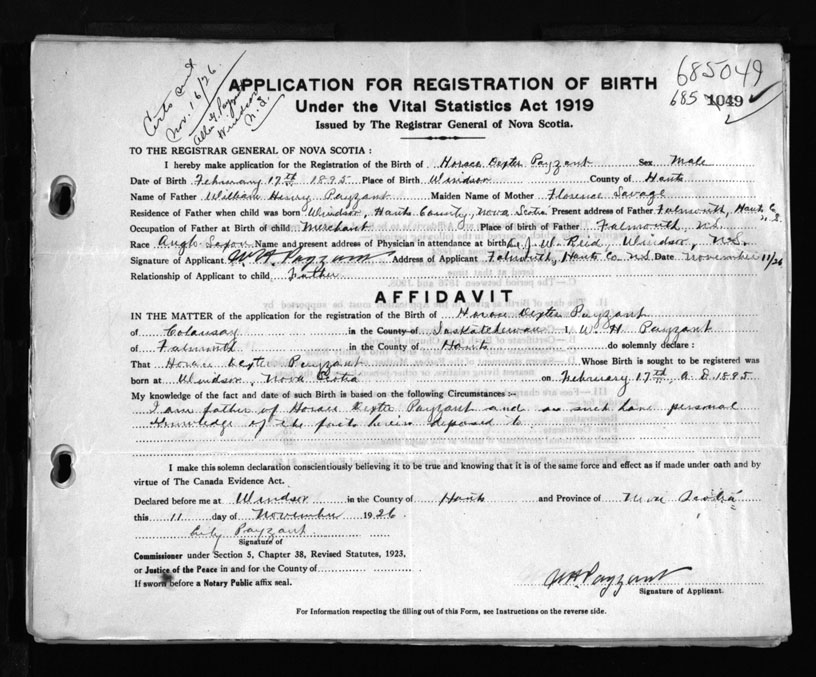 685049
Certs sent
Nov. 16/26.
Windsor
N.S.
685 1049
APPLICATION FOR REGISTRATION OF BIRTH
Under the Vital Statistics Act 1919
Issued by The Registrar General of Nova Scotia.
TO THE REGISTRAR GENERAL OF NOVA SCOTIA :
I hereby make application for the Registration of the Birth of Horace Dexter Payzant Sex Male
Date of Birth February 17th 1895 Place of Birth Windsor County of Hants
Name of Father William Henry Payzant Maiden Name of Mother Florence Savage
Residence of Father when child was born Windsor, Hants County, Nova Scotia Present address of Father Falmouth, Hants Co
Occupation of Father at Birth of child Merchant Place of birth of Father Falmouth, N.S.
Race Anglo Saxon Name and present address of Physician in attendance at birth Dr J. W. Reid, Windsor, N.S.
Signature of Applicant W H Payzant Address of Applicant Falmouth, Hants Co. N.S. Date November 11/26
Relationship of Applicant to child Father
AFFIDAVIT
IN THE MATTER of the application for the registration of the Birth of Horace Dexter Payzant
of Colonsay in the County of Saskatchewan I W. H. Payzant
of Falmouth in the County of Hants do solemnly declare :
That Horace Dexter Payzant Whose Birth is sought to be registered was
born at Windsor, Nova Scotia on February 17th, A. D. 1895
My knowledge of the fact and date of such Birth is based on the following Circumstances :-
I am father of Horace Dexter Payzant and as such have personal
knowledge of the facts herein deposed to
I make this solemn declaration conscientiously believing it to be true and knowing that it is of the same force and effect as if made under oath and by
virtue of The Canada Evidence Act.
Declared before me at Windsor in the County of Hants and Province of Nova Scotia
this 11 day of November 1926
Payzant
Signature of
Commissioner under Section 5, Chapter 38, Revised Statutes, 1923,
or Justice of the Peace in and for the County of
If sworn before a Notary Public affix seal.
W H Payzant
Signature of Applicant.
For Information respecting the filling out of this Form, see Instructions on the reverse side.